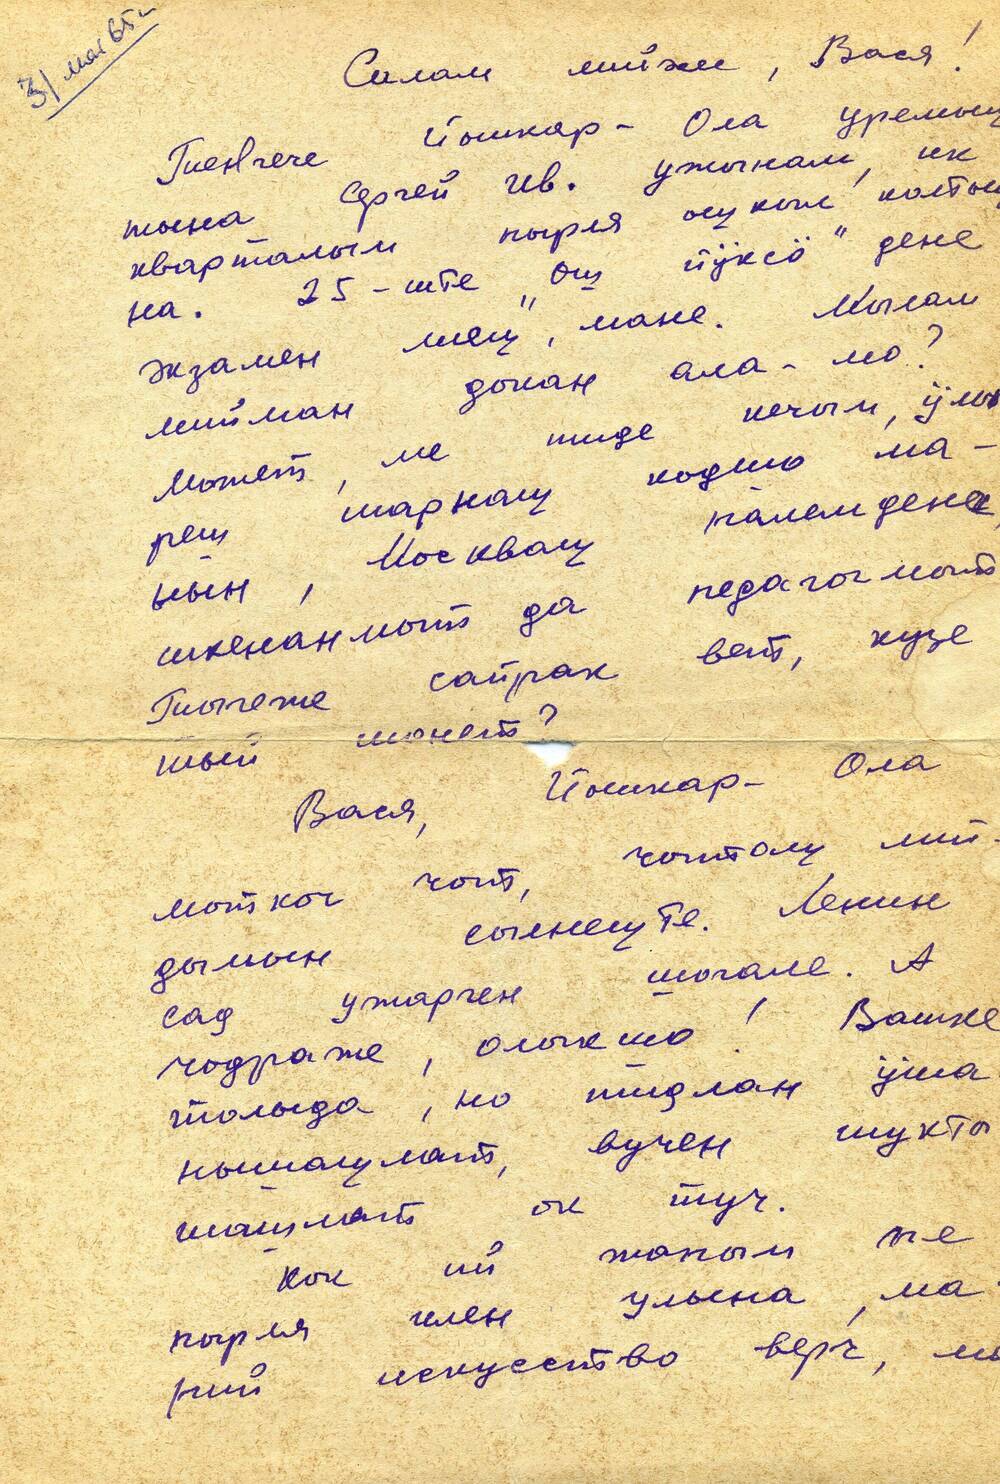 3/ мая 65 г.
Салам лийже, Вася!
Тенгече Йошкар-Ола уремыш
тына Сергей Ив. ужынам, ик
кварталым пырля ошкыл колтыш
на. 25-ште „Ош йӱксӧ" дене
экзамен лиеш", мане. Мылам
мийман докан ала-мо?
Может, ме тиде кечым, ӱмы
реш шарнаш кодшо ма-
ньын, Москваш палемдена,
шкенанмыт да педагогмыт
Тыгеже сайрак вет, кузе
тый шонет?
Вася, Йошкар-Ола
моткоч чот, чытолу мий-
дымын сылнеште. Ленин
сад ужарген шогале. А
чодраже, олыкшо! Вашке
толыда, но тидлан ӱша
нышашлат, вучен шукты
шашлат ок туч.
Кок ий жапым пе
пырля илен улына, ма-
рий искусство верч, мы